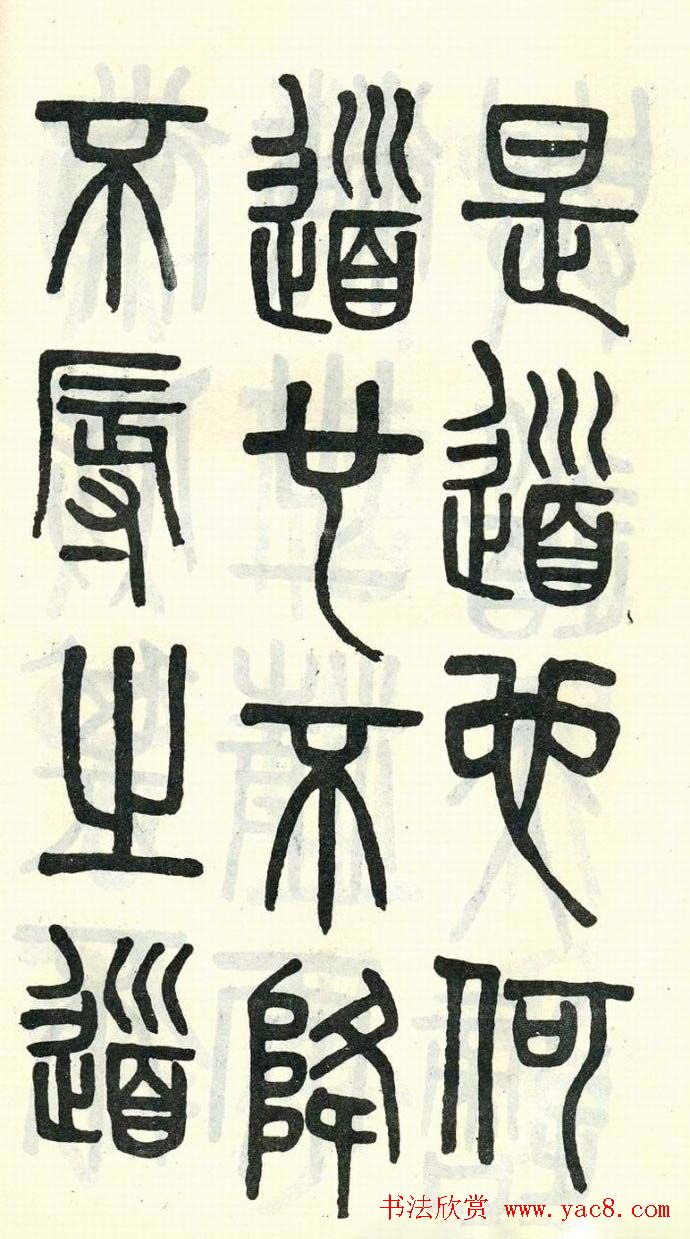 是道也何
道也不降
不辱之道
书法欣赏 www.yac8.com